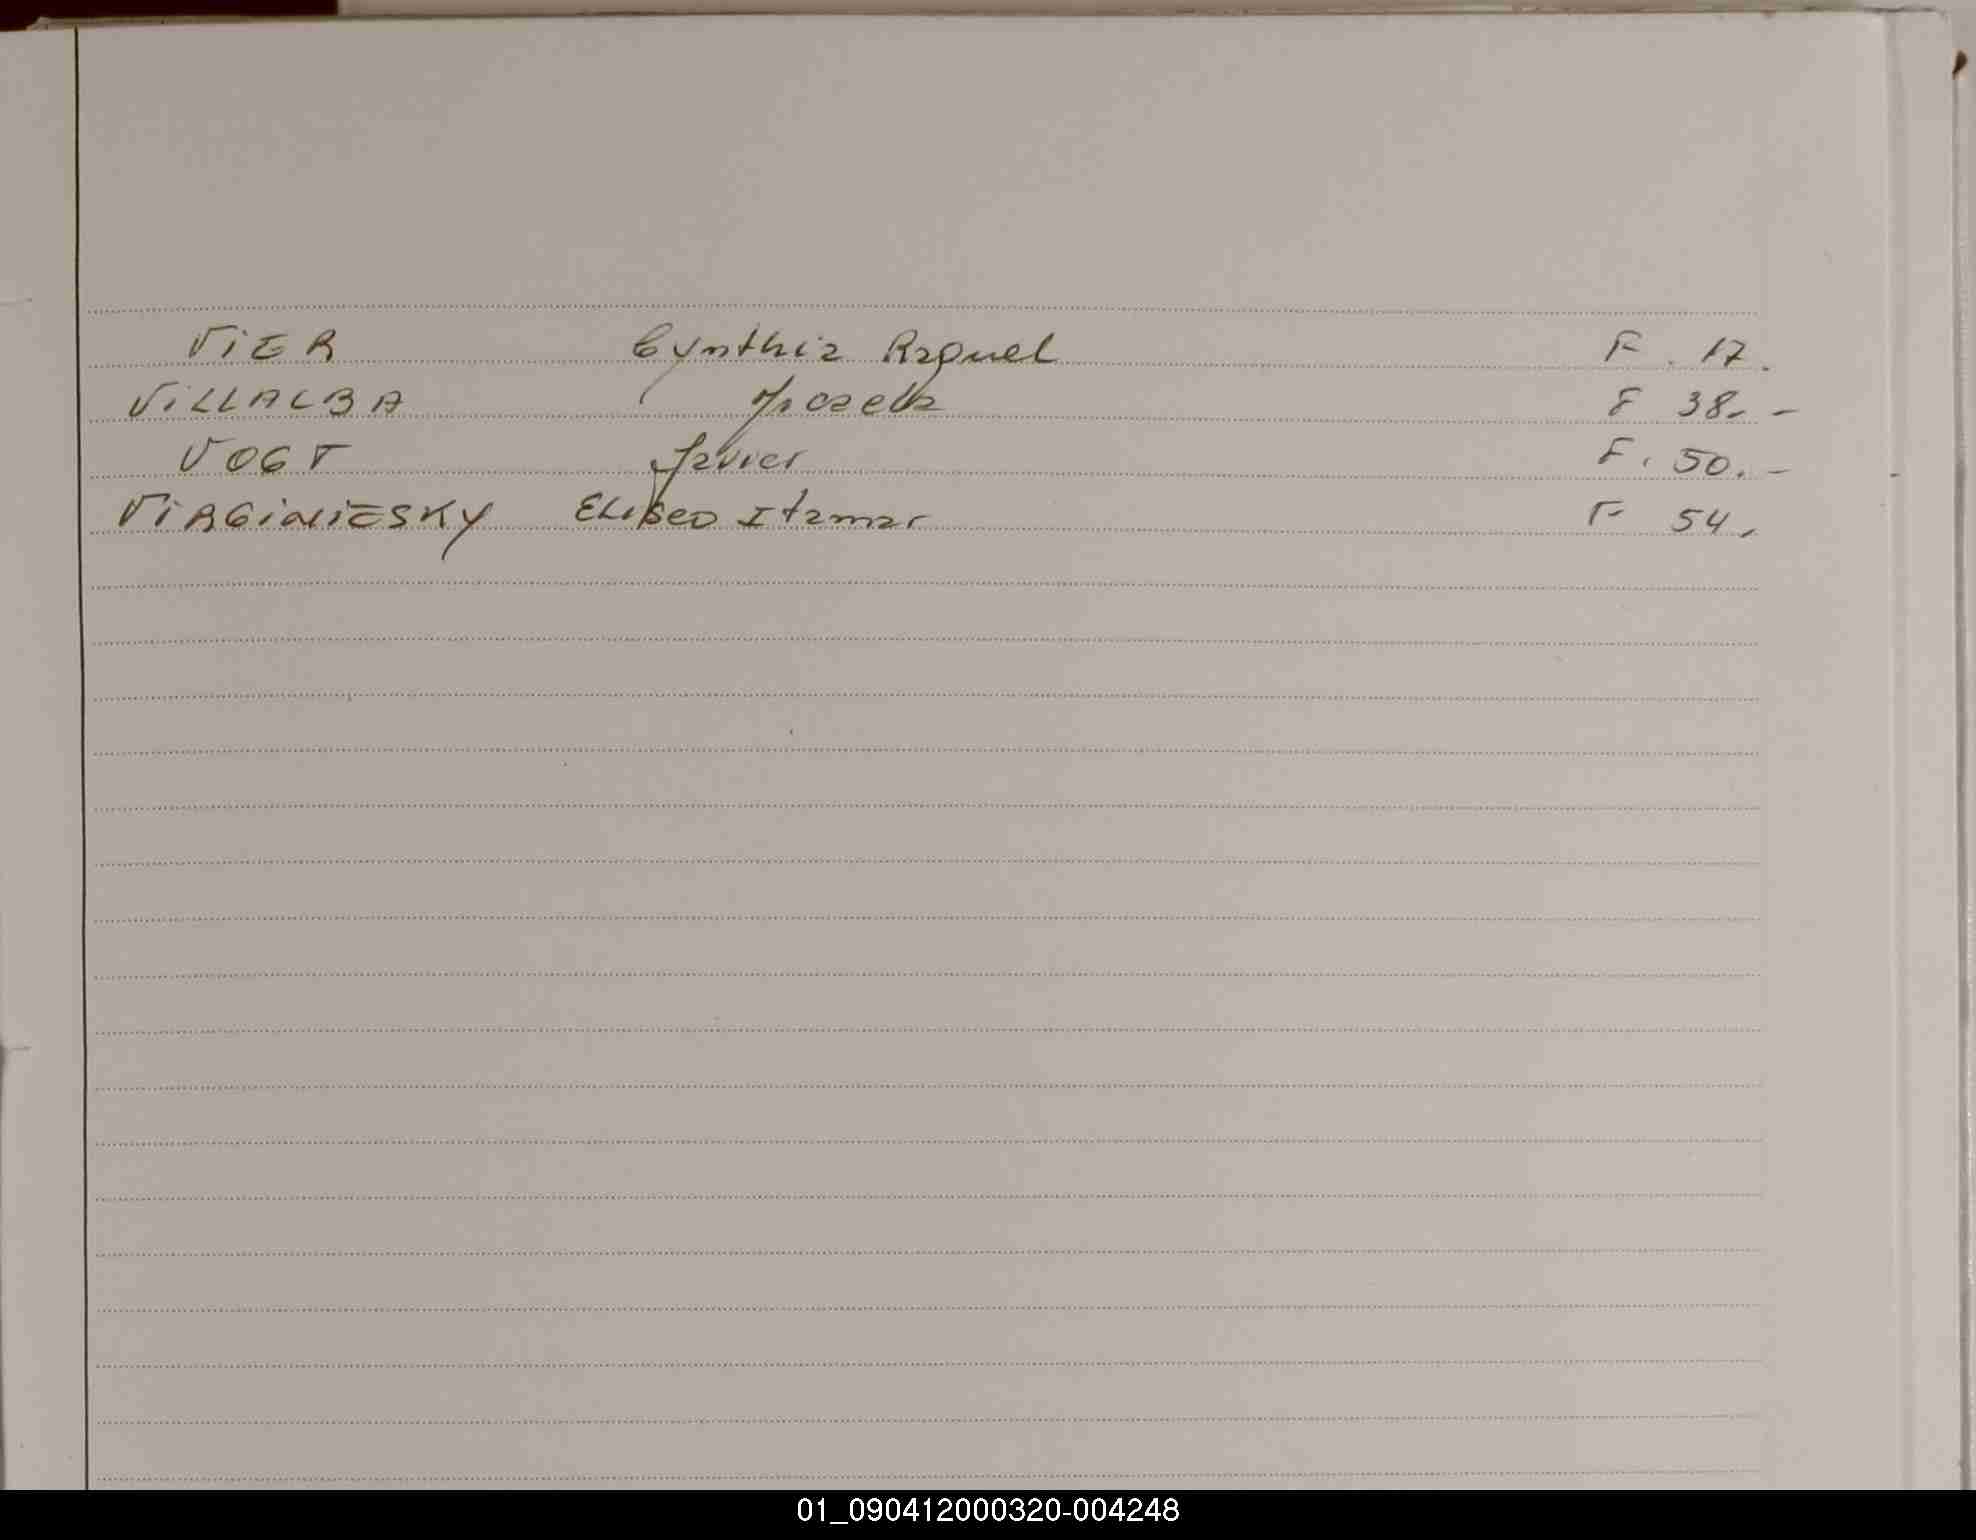 VIER Cynthia Raquel F. 17.
VILLALBA F 38.-
VOGT Javier F. 50.-
VIRGINIESKY Eliseo Itamar F 54.
01_090412000320-004248